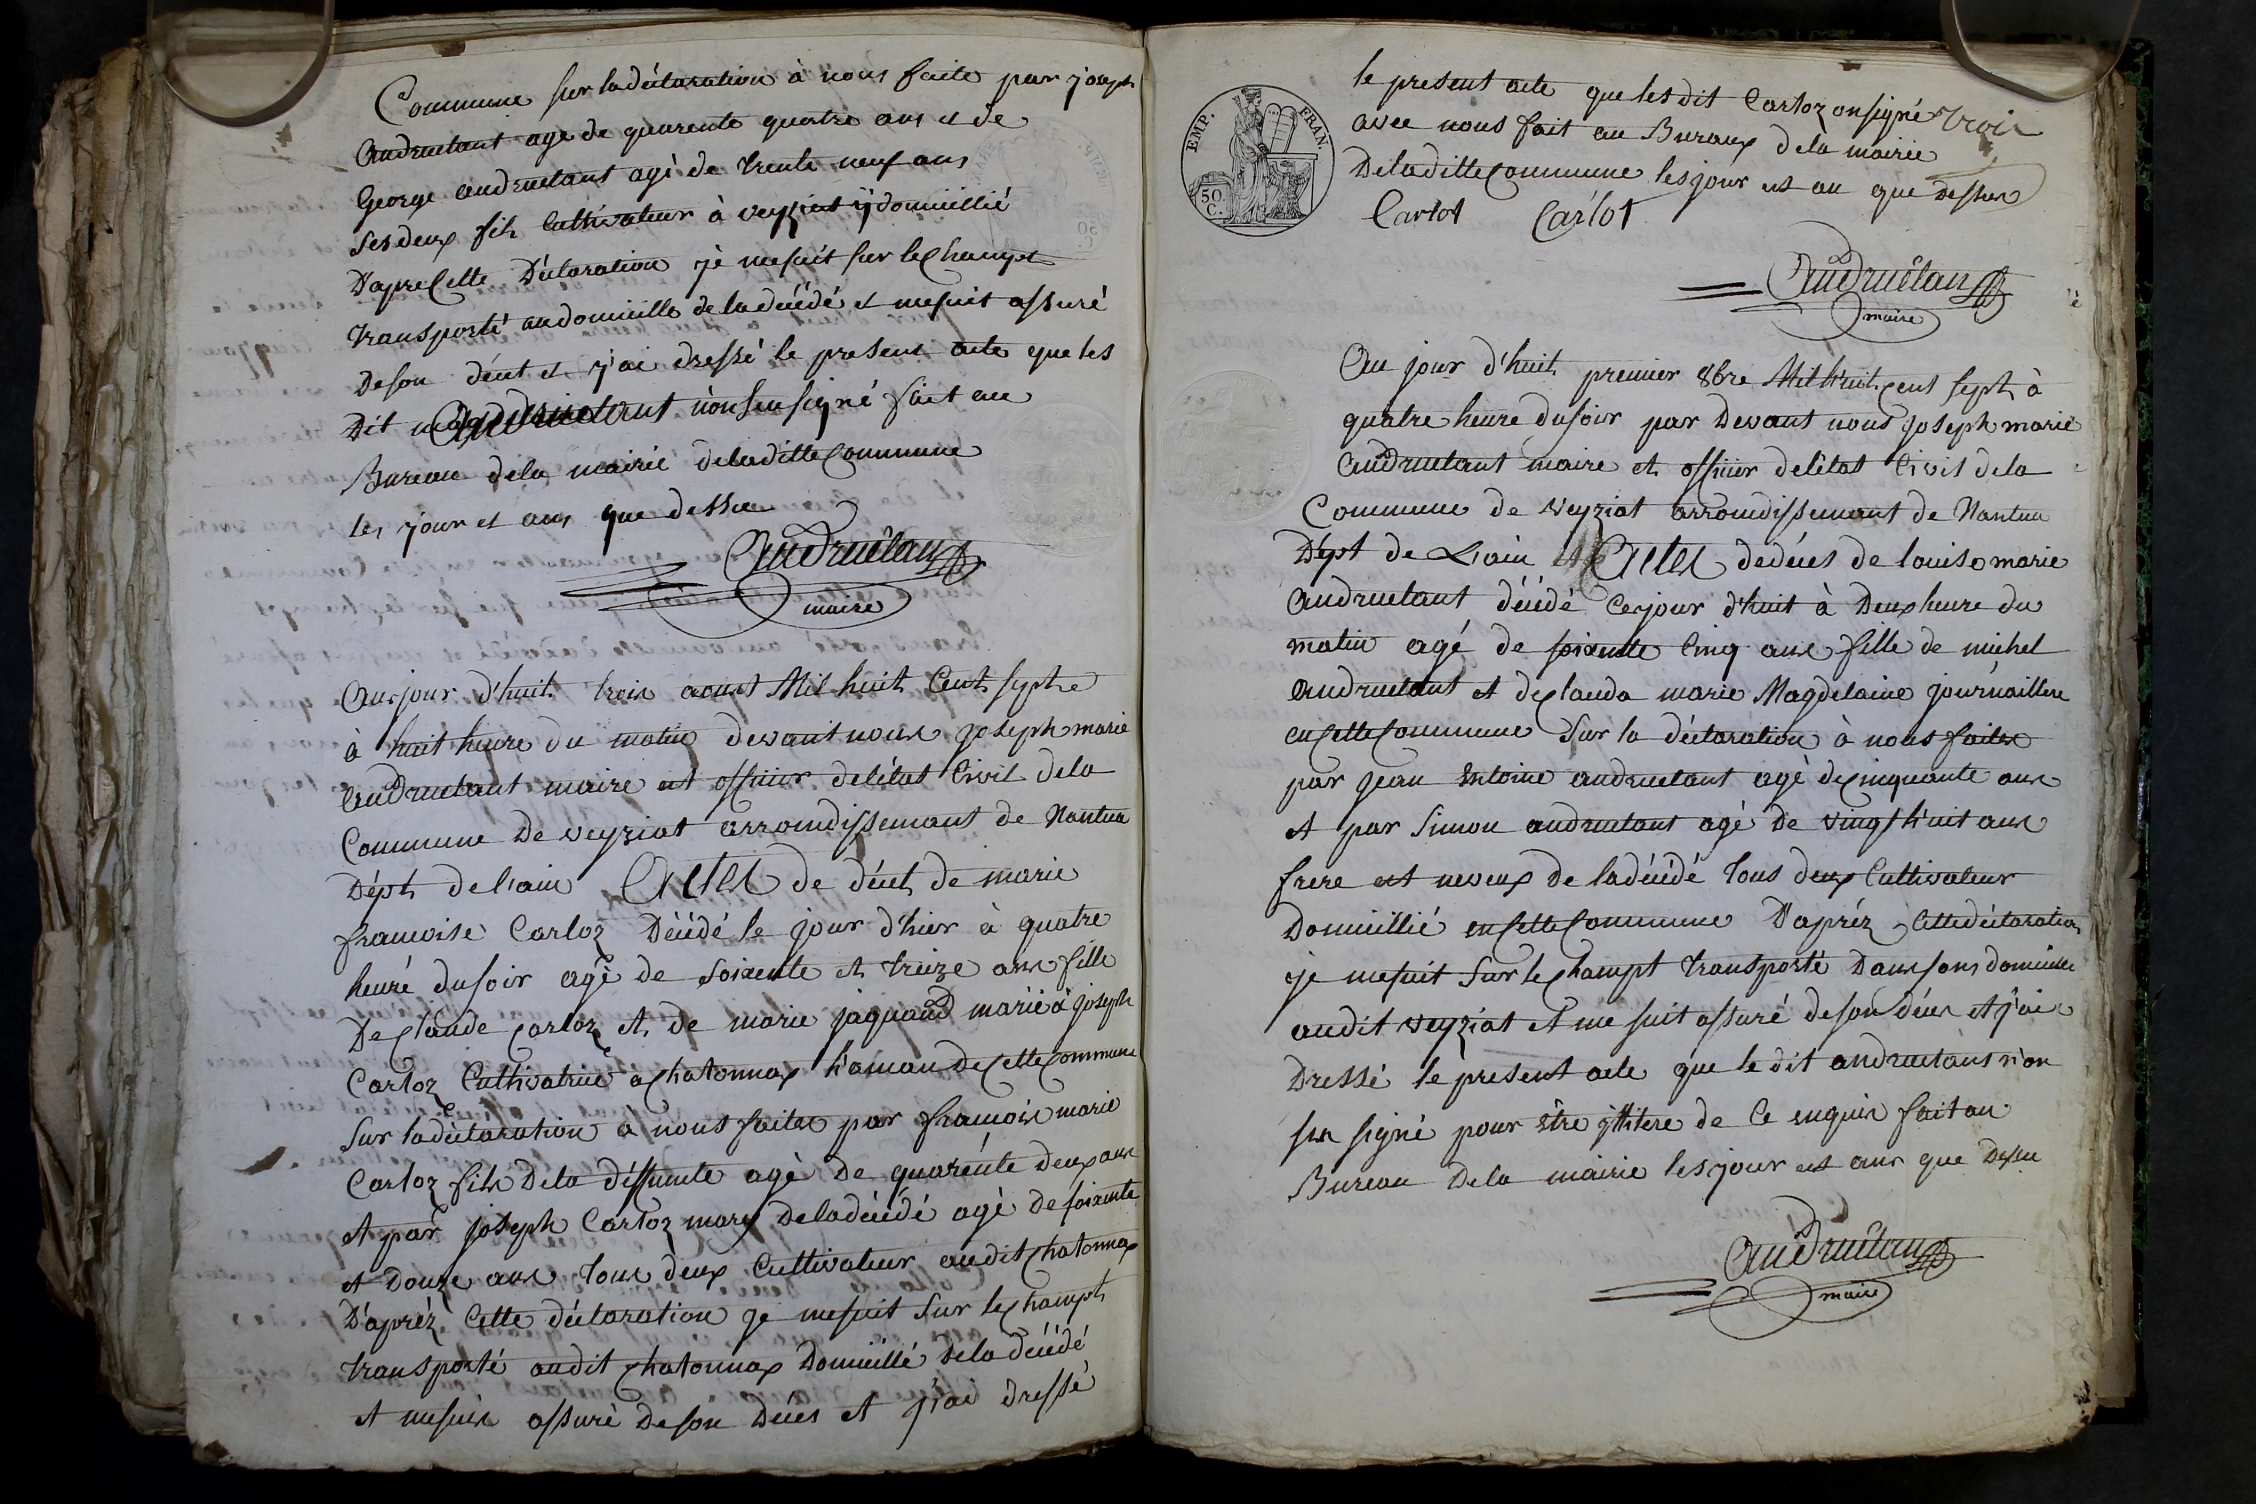 Commune sur ladéclaration à nous faite par joseph
andruetant agé de quarente quatre ans et de
George andruetant agé de trente neuf ans
ses deux fils Cultivateur à veyziat ÿ domicillié
D'apre Cette Déclaration je mesuit sur le Champt
transporté audomicille de ladécédé et mesuit assuré
Deson décet et j'ai dressé le present acte que les
Dit andruetant n'on seu signé fait au
Bureau dela mairie deladitte Commune
les jour et ans que dessu
Andruétan
maire
Aujour d'huit trois aoust Mil huit Cent sept
à huit heure du matin devant nous Joseph marie
andruetant maire et officier de létat Civil dela
Commune De veyziat arrondissemant de Nantua
Dépt de l'ain Actes de décet de marie
francoise Carloz Décédé le jour d'hier à quatre
heuré dusoir agé de soixente et treize ans fille
De Claude Carloz et de marie jaquand marié à joseph
Carloz Cultivatrice à Chatonnax h'amau de Cette Commune
Sur ladéclaration à nous faites par francois marie
Carloz fils Dela deffunte agé de quarente deux ans
et par joseph Carloz mary De ladécédé agé de soixente
et Douze ans tous deux Cultivateur audit Chatonnax
D'apréz Cette déclaration je mesuit Sur le Champt
transporté audit Chatonnax Domicillé dela décédé
et mesuis assuré De son Deces et j'ai dressé
EMP. FRAN.
50 C.
le present acte que les dit Carloz on signé trois
avec nous fait au Bureaux déla mairie
Deladitte Commune les jour et an que dessus
Carlot Carlot
Andruétan
maire
Au jour d'huit premier 8bre Mil huit Cent sept à
quatre heure dusoir par Devant nous Joseph marie
andruetant maire et officier de létat Civil dela
Commune de veyziat arrondissemant de Nantua
Dépt de L'ain Actes dedéces de louise marie
andruetant décédé Ce jour d'huit à Deux heure du
matin agé de soixente Cinq ans fille de michel
andruetant et de Clauda marie Magdelaine journaillere
en Cette Commune Sur la déclaration à nous faites
par Jean Antoine andruetant agé de Cinquante ans
et par Simon andruetant agé de vingt huit ans
frere et neveux de ladécédé tous deux Cultivateur
Domicillié en Cette Commune D'apréz Cette déclaration
je mesuit Sur le Champt transporté Dans sons domicille
audit veyziat et me suit assuré de son déces et j'ai
Dressé le present acte que le dit andruetans n'on
seu signé pour étre de Ce enquis fait au
Bureau Dela mairie les jour et ans que Dessu
Andruétan
maire